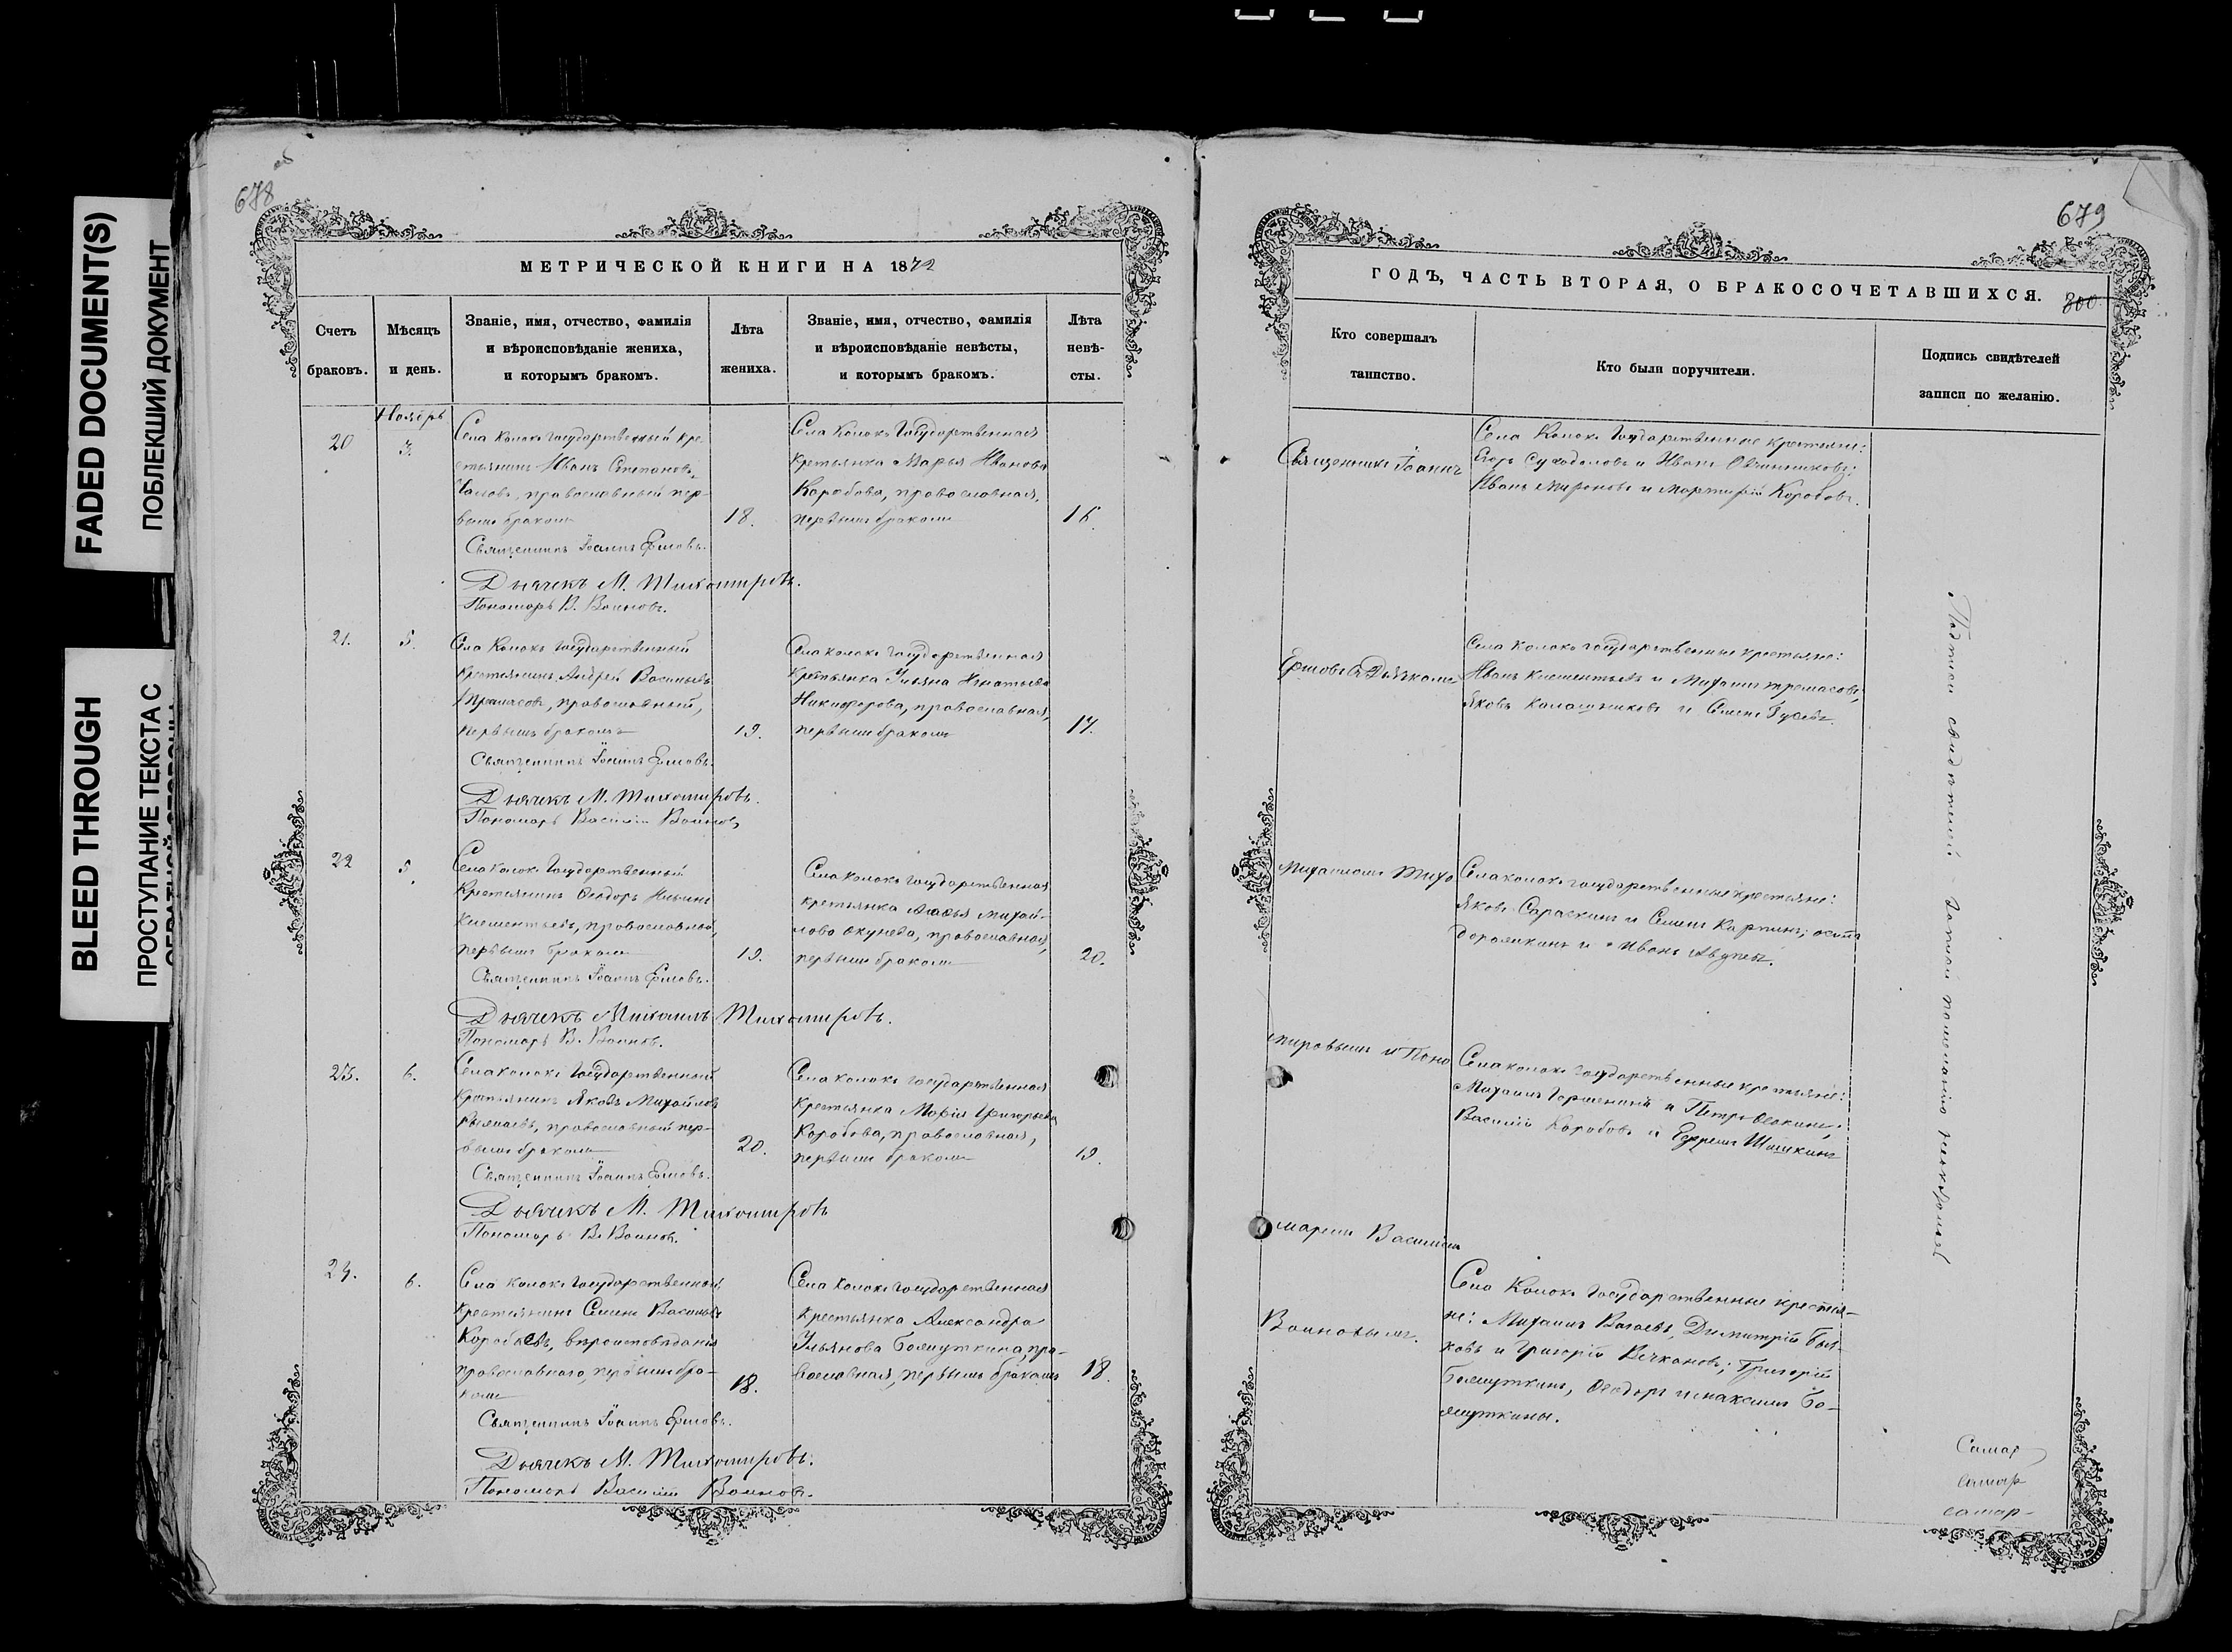 FADED DOCUMENT(S)
ПОБЛЕКШИЙ ДОКУМЕНТ
BLEED THROUGH
ПРОСТУПАНИЕ ТЕКСТА С
678
об
МЕТРИЧЕСКОЙ КНИГИ НА 1872
Счетъ
браковъ.
Мѣсяцъ
и день.
Званіе, имя, отчество, фамилія
и вѣроисповѣданіе жениха,
и которымъ бракомъ.
Лѣта
жениха.
Званіе, имя, отчество, фамилія
и вѣроисповѣданіе невѣсты,
и которымъ бракомъ.
Лѣта
невѣ-
сты.
Ноябрь
20
3.
Села Колокъ Государственный кре-
стьянинъ Иванъ Степановъ
православный пер-
вымъ бракомъ
18.
Села Колокъ Государственная
крестьянка Марья Иванова
Коробова, православная,
первымъ бракомъ
16.
Священникъ Іоаннъ Ершовъ.
Дьячекъ М. Тихомировъ.
Пономарь В. Воиновъ.
21.
5.
Села Колокъ Государственный
крестьянинъ Андрей Васильевъ
православный,
первымъ бракомъ
19.
Села Колокъ Государственная
крестьянка Ульяна Игнатьева
Никифорова, православная,
первымъ бракомъ
17.
Священникъ Іоаннъ Ершовъ.
Дьячекъ М. Тихомировъ.
Пономарь Василій Воиновъ
22
5.
Села Колокъ Государственный
крестьянинъ Ѳедоръ Ильинъ
Клементьевъ, православный,
первымъ бракомъ
19.
Села Колокъ Государственная
крестьянка Михай-
лова Окунева, православная,
первымъ бракомъ
20.
Священникъ Іоаннъ Ершовъ.
Дьячекъ Михаилъ Тихомировъ.
Пономарь В. Воиновъ.
23.
6.
Села Колокъ Государственный
крестьянинъ Яковъ Михайловъ
православный пер-
вымъ бракомъ
20.
Села Колокъ Государственная
крестьянка Марія Григорьева
Коробова, православная,
первымъ бракомъ
19.
Священникъ Іоаннъ Ершовъ.
Дьячекъ М. Тихомировъ
Пономарь В. Воиновъ.
24.
6.
Села Колокъ Государственный
крестьянинъ Семенъ Васильевъ
вѣроисповѣданія
православнаго, первымъ бра-
комъ
18.
Села Колокъ Государственная
крестьянка Александра
Ульянова Болмуткина, пра-
вославная, первымъ бракомъ
18.
Священникъ Іоаннъ Ершовъ.
Дьячекъ М. Тихомировъ.
Пономарь Василій Воиновъ.
679
ГОДЪ, ЧАСТЬ ВТОРАЯ, О БРАКОСОЧЕТАВШИХСЯ.
300
Кто совершалъ
таинство.
Кто были поручители.
Подпись свидѣтелей
записи по желанію.
Священникъ Іоаннъ
Ершовъ съ Дьячкомъ
Михаиломъ Тихо
мировымъ и Поно
маремъ Василіемъ
Воиновымъ.
Села Колокъ Государственные крестьяне:
Егоръ Суходоловъ и Иванъ Овчинниковъ;
Иванъ Мироновъ и Мартирій Коробовъ.
Села Колокъ Государственные крестьяне:
Иванъ Клементьевъ и Михаилъ
Яковъ Калашниковъ и Семенъ Гусевъ.
Села Колокъ Государственные крестьяне:
Яковъ Сараскинъ и Семенъ Карпинъ; Осипъ
и Иванъ
Села Колокъ Государственные крестьяне:
Михаилъ Горшенинъ и Петръ
Василій Коробовъ и Ефремъ Шашкинъ
Села Колокъ Государственные крестья-
не: Михаилъ Димитрій
и Григорій Вечкановъ; Григорій
Болмуткинъ, Ѳедоръ и Максимъ Бо-
лмуткины.
самар
самар
самар-